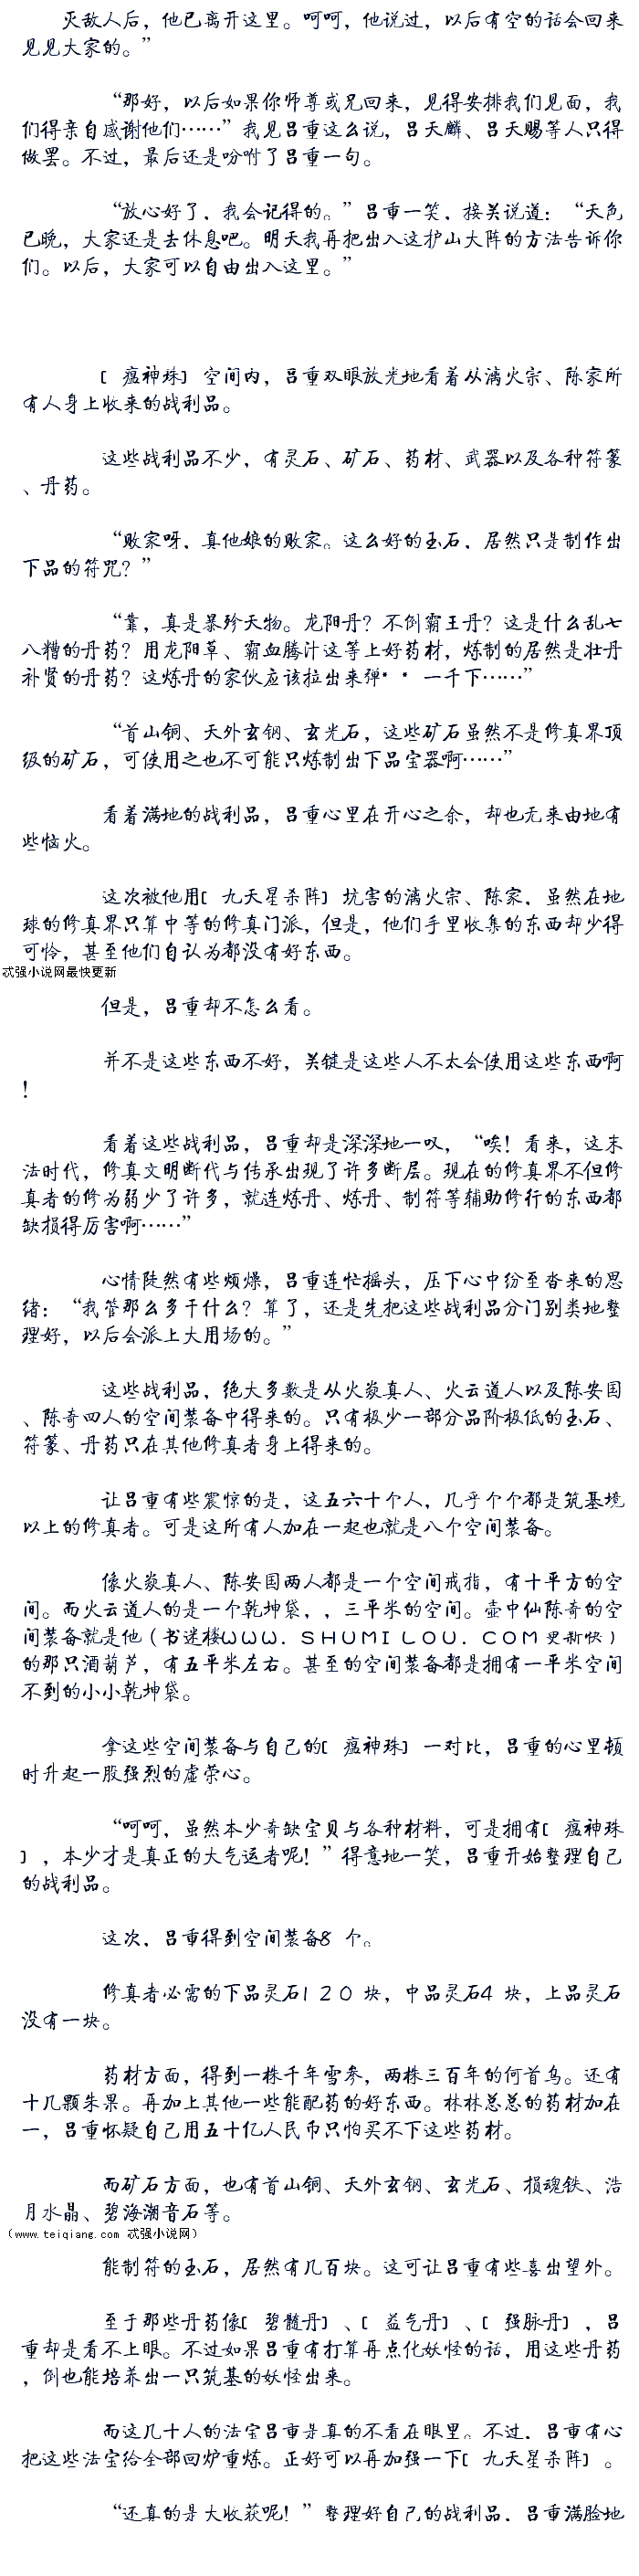 灭敌人后，他已离开这里。呵呵，他说过，以后有空的话会回来
见见大家的。”
“那好，以后如果你师尊或兄回来，见得安排我们见面，我
们得亲自感谢他们……”我见吕重这么说，吕天麟、吕天赐等人只得
做罢。不过，最后还是吩咐了吕重一句。
“放心好了，我会记得的。”吕重一笑，接关说道：“天色
已晚，大家还是去休息吧。明天我再把出入这护山大阵的方法告诉你
们。以后，大家可以自由出入这里。”
〔瘟神珠〕空间内，吕重双眼放光地看着从漓火宗、陈家所
有人身上收来的战利品。
这些战利品不少，有灵石、矿石、药材、武器以及各种符篆
、丹药。
“败家呀，真他娘的败家。这么好的玉石，居然只是制作出
下品的符咒？”
“靠，真是暴殄天物。龙阳丹？不倒霸王丹？这是什么乱七
八糟的丹药？用龙阳草、霸血腾汁这等上好药材，炼制的居然是壮丹
补贤的丹药？这炼丹的家伙应该拉出来弹**一千下……”
“首山铜、天外玄钢、玄光石，这些矿石虽然不是修真界顶
级的矿石，可使用之也不可能只炼制出下品宝器啊……”
看着满地的战利品，吕重心里在开心之余，却也无来由地有
些恼火。
这次被他用〔九天星杀阵〕坑害的漓火宗、陈家，虽然在地
球的修真界只算中等的修真门派，但是，他们手里收集的东西却少得
可怜，甚至他们自认为都没有好东西。
忒强小说网最快更新
但是，吕重却不怎么看。
并不是这些东西不好，关键是这些人不太会使用这些东西啊
！
看着这些战利品，吕重却是深深地一叹，“唉！看来，这末
法时代，修真文明断代与传承出现了许多断层。现在的修真界不但修
真者的修为弱少了许多，就连炼丹、炼丹、制符等辅助修行的东西都
缺损得厉害啊……”
心情陡然有些烦燥，吕重连忙摇头，压下心中纷至沓来的思
绪：“我管那么多干什么？算了，还是先把这些战利品分门别类地整
理好，以后会派上大用场的。”
这些战利品，绝大多数是从火焱真人、火云道人以及陈安国
、陈奇四人的空间装备中得来的。只有极少一部分品阶极低的玉石、
符篆、丹药只在其他修真者身上得来的。
让吕重有些震惊的是，这五六十个人，几乎个个都是筑基境
以上的修真者。可是这所有人加在一起也就是八个空间装备。
像火焱真人、陈安国两人都是一个空间戒指，有十平方的空
间。而火云道人的是一个乾坤袋，，三平米的空间。壶中仙陈奇的空
间装备就是他（书迷楼WWW．SHUMILOU．COM更新快）
的那只酒葫芦，有五平米左右。甚至的空间装备都是拥有一平米空间
不到的小小乾坤袋。
拿这些空间装备与自己的〔瘟神珠〕一对比，吕重的心里顿
时升起一股强烈的虚荣心。
“呵呵，虽然本少奇缺宝贝与各种材料，可是拥有〔瘟神珠
〕，本少才是真正的大气运者呢！”得意地一笑，吕重开始整理自己
的战利品。
这次，吕重得到空间装备8个。
修真者必需的下品灵石120块，中品灵石4块，上品灵石
没有一块。
药材方面，得到一株千年雪参，两株三百年的何首乌。还有
十几颗朱果。再加上其他一些能配药的好东西。林林总总的药材加在
一，吕重怀疑自己用五十亿人民币只怕买不下这些药材。
而矿石方面，也有首山铜、天外玄钢、玄光石、损魂铁、浩
月水晶、碧海潮音石等。
（www.teiqiang.com 忒强小说网）
能制符的玉石，居然有几百块。这可让吕重有些喜出望外。
至于那些丹药像〔碧髓丹〕、〔益气丹〕、〔强脉丹〕，吕
重却是看不上眼。不过如果吕重有打算再点化妖怪的话，用这些丹药
，倒也能培养出一只筑基的妖怪出来。
而这几十人的法宝吕重是真的不看在眼里。不过，吕重有心
把这些法宝给全部回炉重炼。正好可以再加强一下〔九天星杀阵〕。
“还真的是大收获呢！”整理好自己的战利品，吕重满脸地